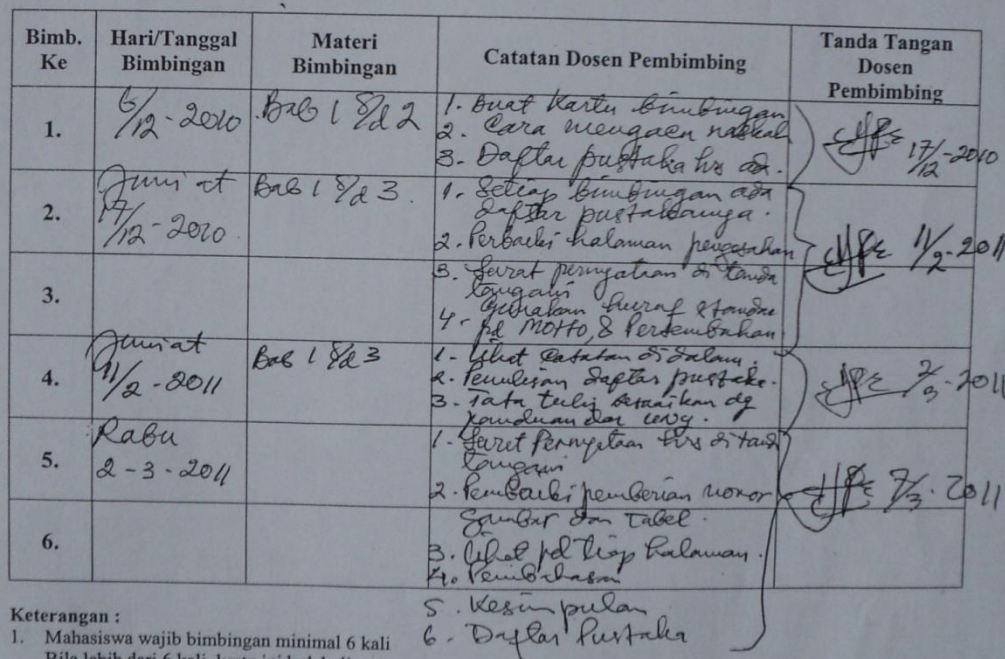 Bimb. Ke
Hari/Tanggal Bimbingan
Materi Bimbingan
Catatan Dosen Pembimbing
Tanda Tangan Dosen Pembimbing
1.
6/12 - 2010
Bab 1 s/d 2
1. Buat Kartu bimbingan
2. Cara mengacu naskah
3. Daftar pustaka hrs ada.
17/12 - 2010
2.
Jum'at
17/12 - 2010
Bab 1 s/d 3.
1. Setiap bimbingan ada
daftar pustakanya.
2. Perbaiki halaman pengesahan
11/2 - 2011
3.
3. Surat pernyataan di tanda
tangani
4. Gunakan huruf standar
pd MOTTO, & Persembahan
4.
Jum'at
11/2 - 2011
Bab 1 s/d 3
1. Lihat catatan didalam.
2. Penulisan daftar pustaka.
3. Tata tulis sesuaikan dg
panduan dar
2/3 - 2011
5.
Rabu
2 - 3 - 2011
1. Surat Pernyataan hrs di tand
tangani
2. Perbaiki pemberian nomor
Gambar dan Tabel.
7/3 - 2011
6.
3. Lihat pd tiap halaman.
4. Pembahasan
5. Kesimpulan
6. Daftar Pustaka
Keterangan :
1. Mahasiswa wajib bimbingan minimal 6 kali
Bila lebih dari 6 kali, kartu ini